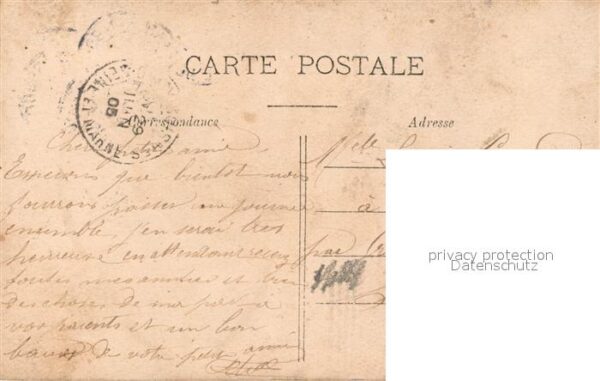 CARTE POSTALE
Correspondance
Adresse
29
JUIN
05
SEINE ET
Chère amie
Espérons que bientôt nous
pourrons passer une journée
ensemble, j'en serai très
heureuse en attendant recevez
toutes mes amitiés et bien
des choses de ma part à
vos parents et un bon
baiser de votre petite amie
Mlle
à
par
privacy protection
Datenschutz